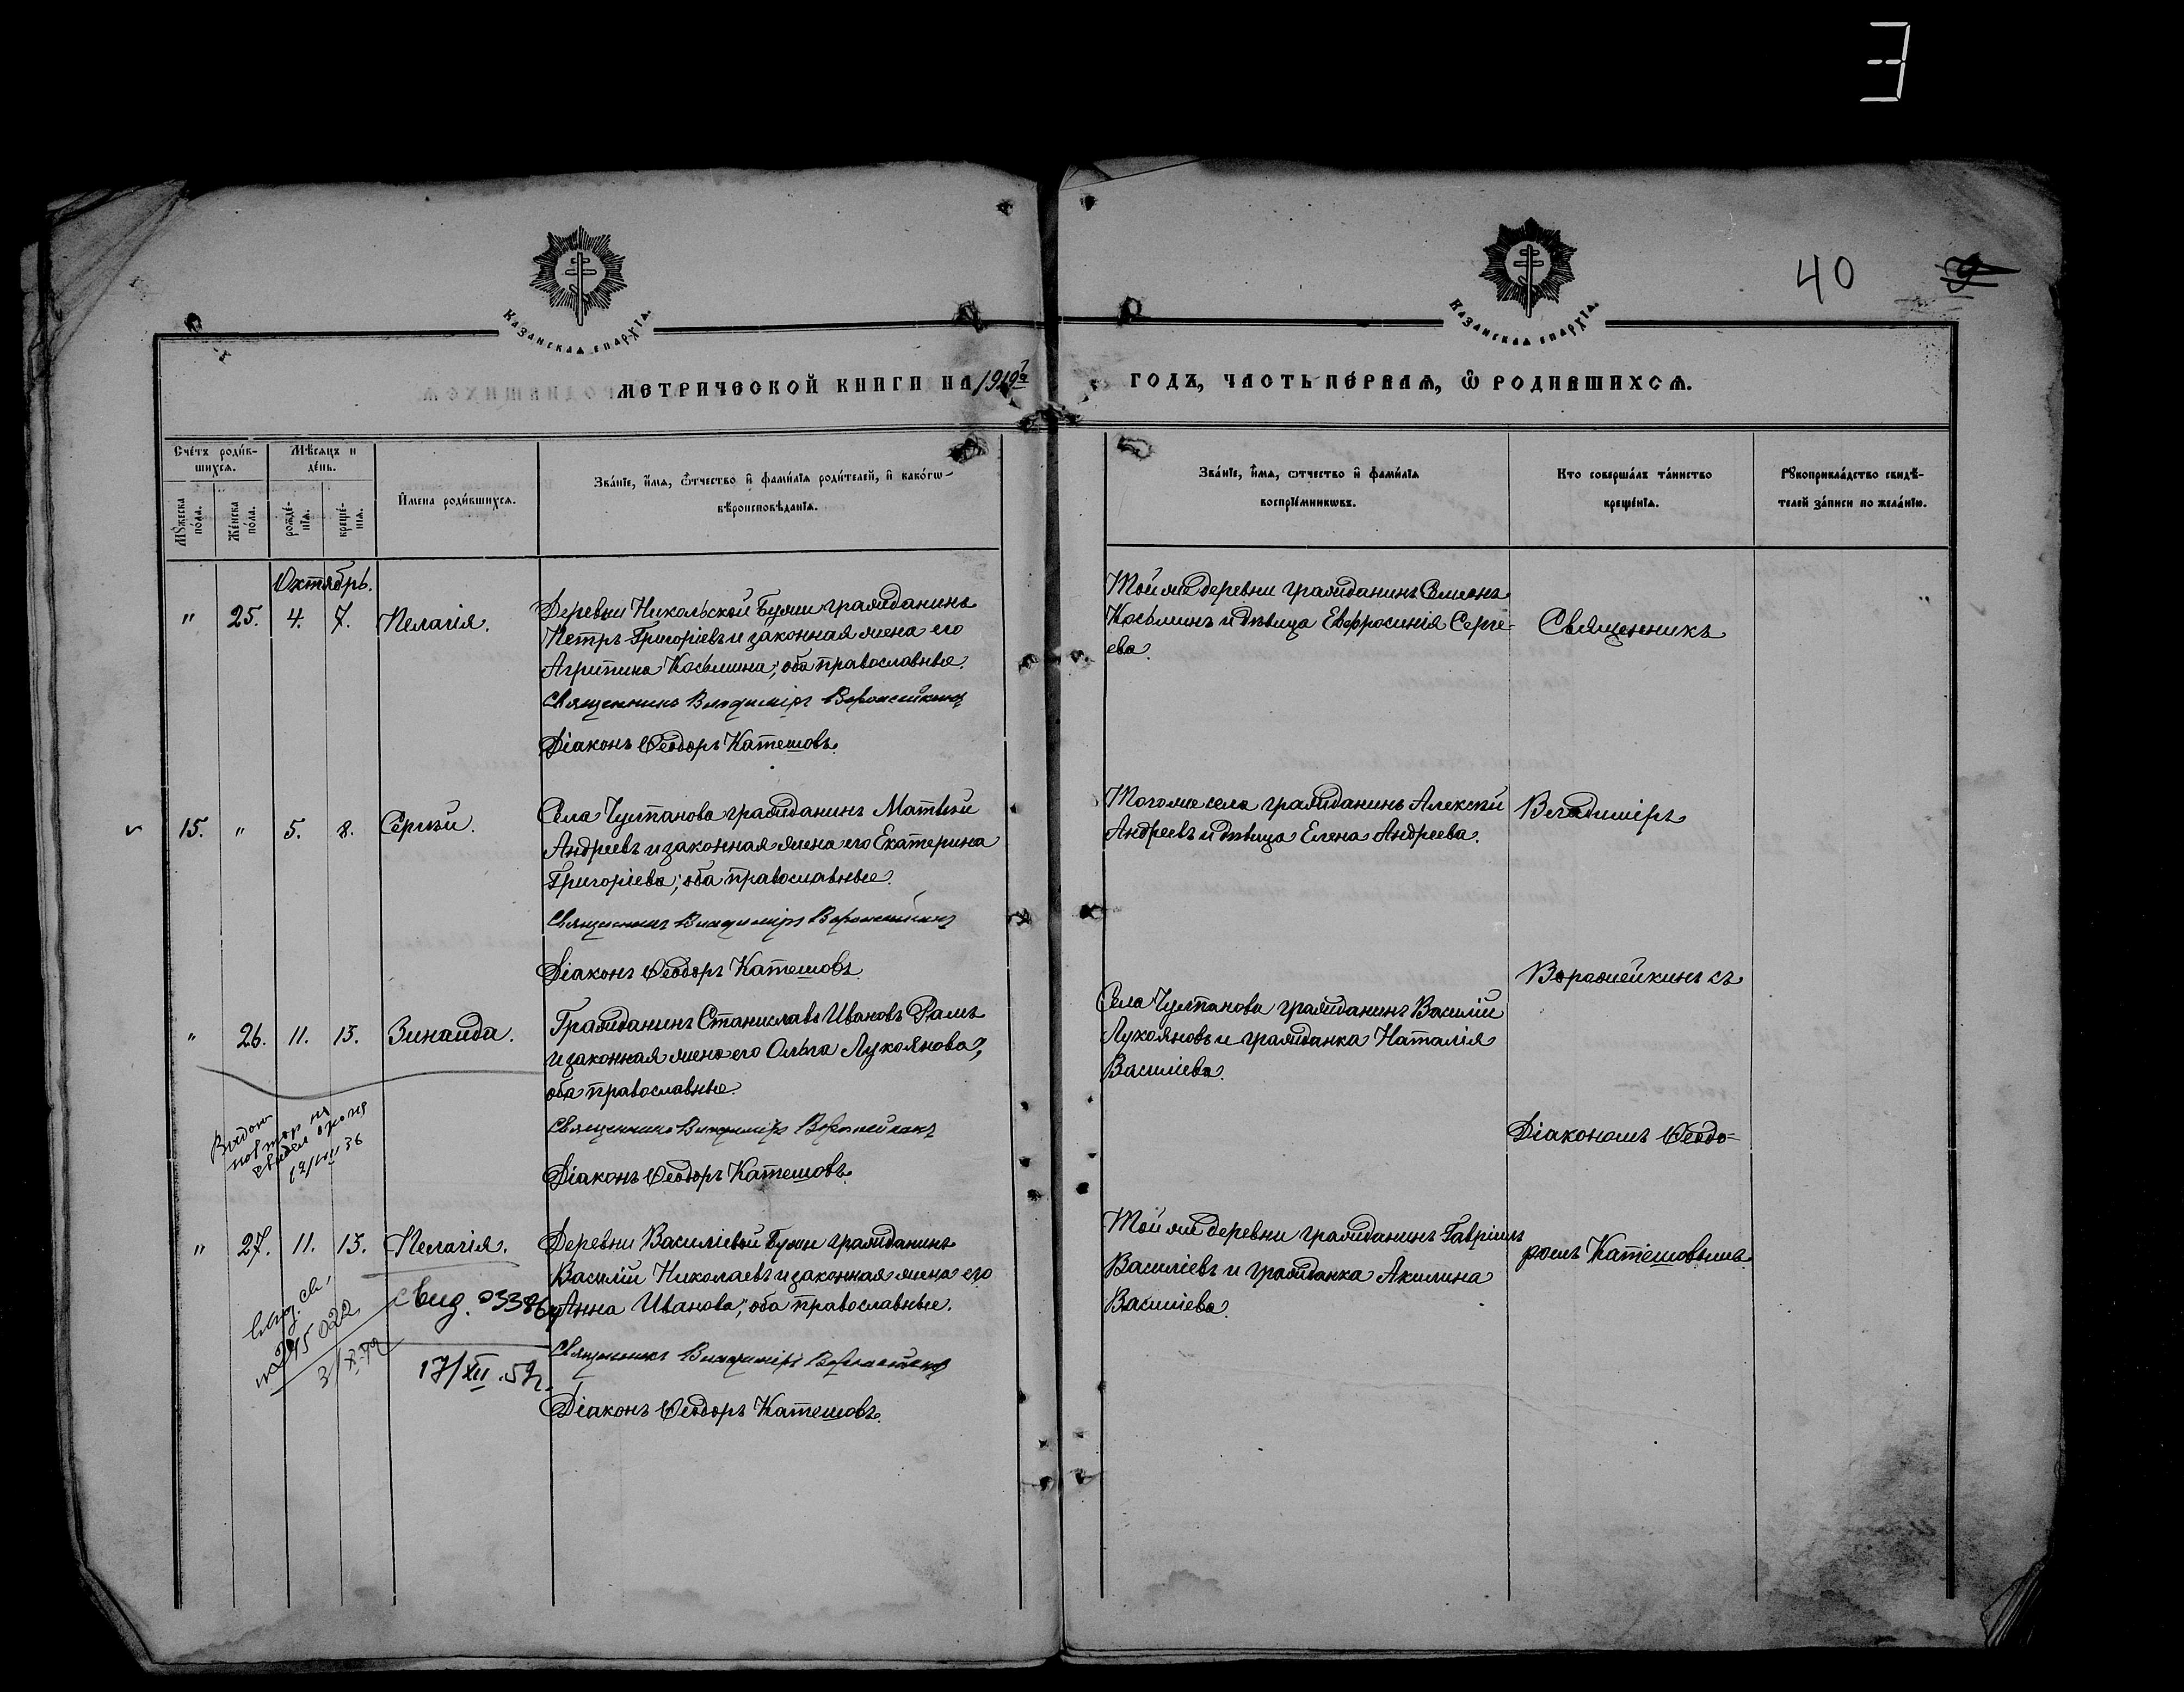 E
40
Казанская епархїа.
Казанская епархїа.
МЕТРИЧЕСКОЙ КНИГИ НА 1919й
ГОДЪ, ЧАСТЬ ПЕ́РВАЯ, Ѿ РОДИВШИХСЯ.
Сче́тъ роди́в-
шихся.
Мѣ́сяцъ и
де́нь.
Мꙋ́жеска
по́ла.
Же́нска
по́ла.
рожде́-
нїя.
креще́-
нїя.
И҆мена роди́вшихся.
Зва́нїе, и҆́мя, ѻ҆́тчество и҆ фами́лїя роди́телей, и҆ како́гѡ
вѣ́роисповѣ́данїя.
Зва́нїе, и҆́мя, ѻ҆́тчество и҆ фами́лїя
воспрїе́мникѡвъ.
Кто соверша́лъ та́инство
креще́нїя.
Рꙋкоприкла́дство свидѣ́-
телей за́писи по жела́нїю.
Октябрь.
" 25. 4. 7. Пелагія.
Деревни Никольской Бужи гражданинъ
Петръ Григоріевъ и законная жена его
Агрипина Косьмина; оба православные.
Священникъ Владиміръ Воронейкинъ
Діаконъ Ѳеодоръ Катешовъ.
Той же деревни гражданинъ Симеонъ
Косьминъ и дѣвица Евфросинія Серге-
ева.
Священникъ
15. " 5. 8. Сергѣй.
Села Чултанова гражданинъ Матѳей
Андреевъ и законная жена его Екатерина
Григоріева; оба православные.
Священникъ Владиміръ Воронейкинъ
Діаконъ Ѳеодоръ Катешовъ.
Того же села гражданинъ Алексѣй
Андреевъ и дѣвица Елена Андреева.
Владиміръ
Воронейкинъ съ
" 26. 11. 13. Зинаида.
Гражданинъ Станиславъ Ивановъ
и законная жена его Ольга Лукоянова,
оба православные.
Священникъ Владиміръ Воронейкинъ
Діаконъ Ѳеодоръ Катешовъ.
Села Чултанова гражданинъ Василій
Лукояновъ и гражданка Наталія
Василіева.
Діакономъ Ѳеодо=
повтор
36
" 27. 11. 13. Пелагія.
Деревни Василіевой Бужи гражданинъ
Василій Николаевъ и законная жена его
Анна Иванова; оба православные.
Священникъ Владиміръ Воронейкинъ
Діаконъ Ѳеодоръ Катешовъ.
Той же деревни гражданинъ Гавріилъ
Василіевъ и гражданка Акилина
Василіева.
ромъ Катешовымъ.
свид.
17/XII.